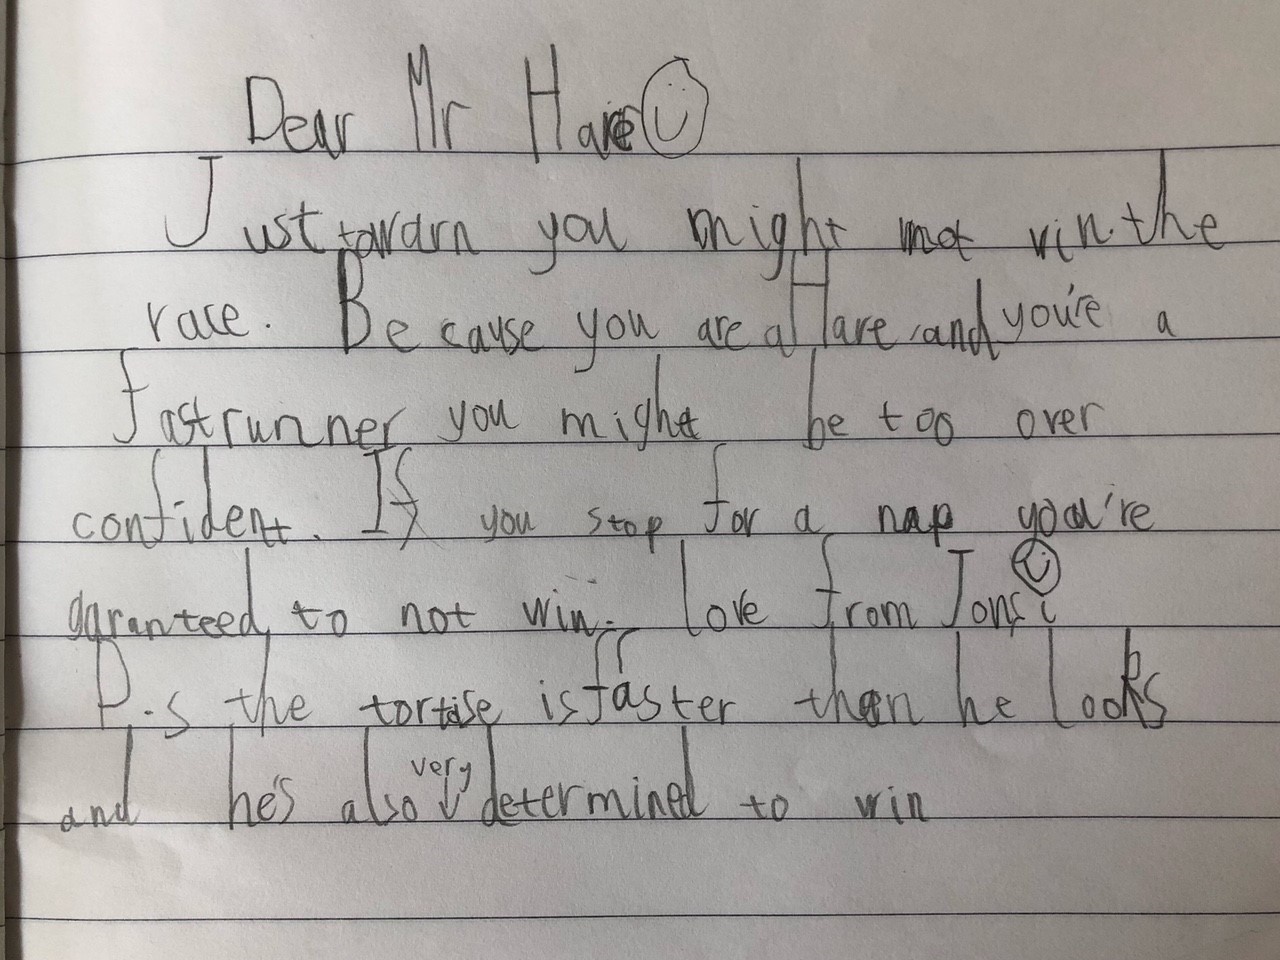 Dear Mr Hare
Just towarn you might not win the
race. Because you are a Hare and you're a
fast runner you might be too over
confident. If you stop for a nap you're
garanteed to not win. love from Jonsi
P.s the tortise is faster than he looks
and he's also very determined to win